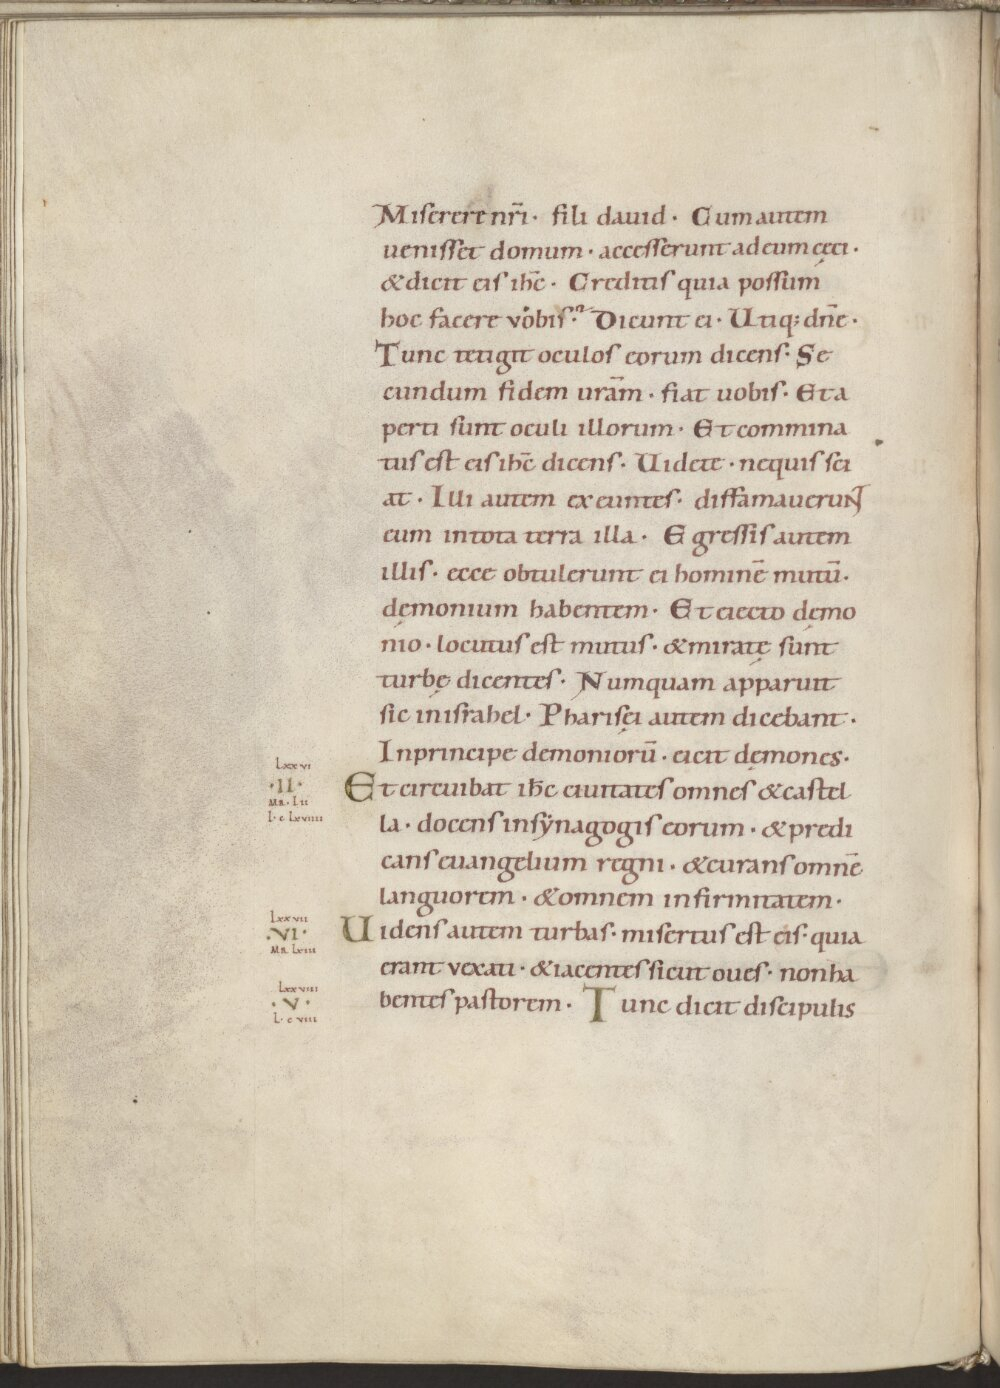 Miserere nr̄i · fili dauid · Cum autem
uenisset domum · accesserunt ad eum cęci ·
& dicit eis ih̄c · Creditis quia possum
hoc facere vobis · Dicunt ei · Utiq; dn̄e ·
Tunc tetigit oculos eorum dicens · Se
cundum fidem urām · fiat uobis · Et a
perti sunt oculi illorum · Et commina
tus est eis ih̄c dicens · Uidete · nequis sci
at · Illi autem exeuntes · diffamauerunt
eum in tota terra illa · Egressis autem
illis · ecce obtulerunt ei hominē mutū ·
dęmonium habentem · Et eiecto dęmo
nio · locutus est mutus · & miratę sunt
turbę dicentes · Numquam apparuit
sic in israhel · Pharisęi autem dicebant ·
In principe demoniorū · eicit dęmones ·
Lxxvi
· II ·
MR · LII
L · c Lxviiii
Et circuibat ih̄c ciuitates omnes & castel
la · docens in synagogis eorum · & predi
cans euangelium regni · & curans omnē
languorem · & omnem infirmitatem ·
Lxxvii
· VI ·
MR. Lxiii
Uidens autem turbas · misertus est eis · quia
erant vexati · & iacentes sicut oues · non ha
Lxxviii
· V ·
L · c viii
bentes pastorem · Tunc dicit discipulis